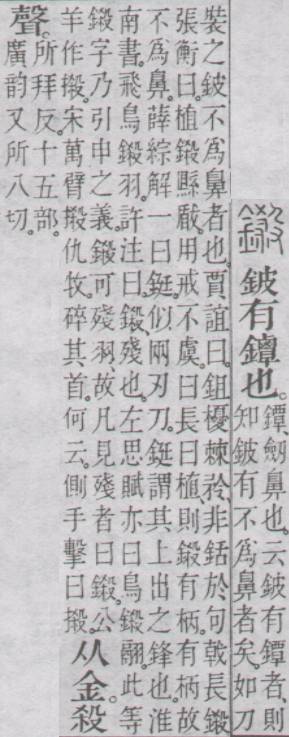 鎩 鈹有鐔也。
鐔、劒鼻也。云鈹有鐔者、則
知鈹有不爲鼻者矣。如刀
裝之鈹不爲鼻者也。賈誼曰。鉏櫌棘矜、非銛於句戟長鎩
張衡曰。植鎩縣瞂。用戒不虞。曰長曰植、則鎩有柄。有柄故
不爲鼻。薛綜解一曰鋌似兩刃刀。鋌謂其上出之鋒也。淮
南書。飛鳥鎩羽。許注曰。鎩、殘也。左思賦亦曰鳥鎩翮。此等
鎩字乃引申之義。鎩可殘羽、故凡見殘者曰鎩。公
羊作摋。宋萬臂摋仇牧。碎其首。何云。側手擊曰摋。
从金殺
聲。
所拜反。十五部。
廣韵又所八切。